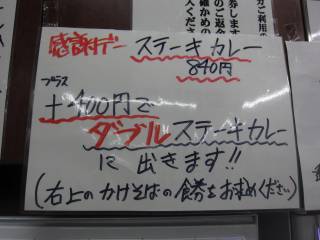 感謝デー ステーキカレー
840円
プラス
+400円で
ダブルステーキカレー
に出きます!!
(右上のかけそばの食券をお求めください)